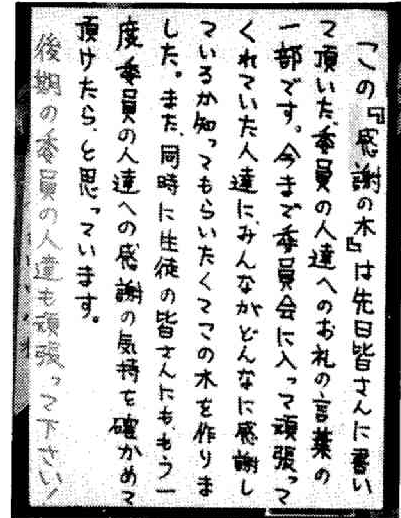 この『感謝の木』は先日皆さんに書い
て頂いた、委員の人達へのお礼の言葉の
一部です。今まで委員会に入って頑張って
くれていた人達に、みんながどんなに感謝し
ているか知ってもらいたくてこの木を作りま
した。また、同時に生徒の皆さんにももう一
度委員の人達への感謝の気持を確かめて
頂けたら、と思っています。
後期の委員の人達も頑張って下さい!